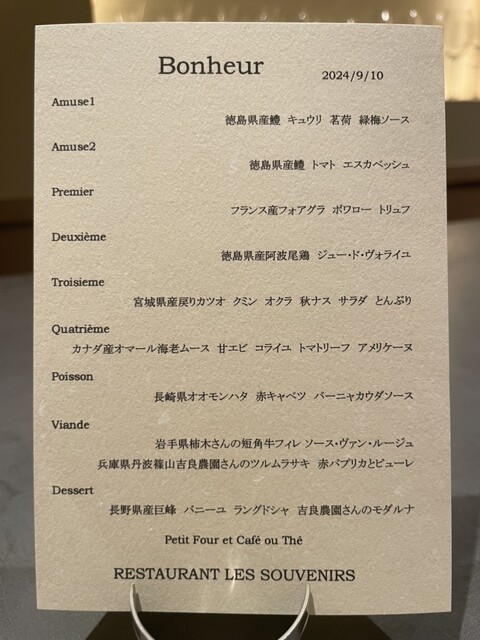 Bonheur 2024/9/10
Amuse1
徳島県産鱧 キュウリ 茗荷 緑梅ソース
Amuse2
徳島県産鱧 トマト エスカベッシュ
Premier
フランス産フォアグラ ポワロー トリュフ
Deuxième
徳島県産阿波尾鶏 ジュー・ド・ヴォライユ
Troisieme
宮城県産戻りカツオ クミン オクラ 秋ナス サラダ とんぶり
Quatrième
カナダ産オマール海老ムース 甘エビ コライユ トマトリーフ アメリケーヌ
Poisson
長崎県オオモンハタ 赤キャベツ バーニャカウダソース
Viande
岩手県柿木さんの短角牛フィレ ソース・ヴァン・ルージュ
兵庫県丹波篠山吉良農園さんのツルムラサキ 赤パプリカとピューレ
Dessert
長野県産巨峰 バニーユ ラングドシャ 吉良農園さんのモダルナ
Petit Four et Café ou Thê
RESTAURANT LES SOUVENIRS